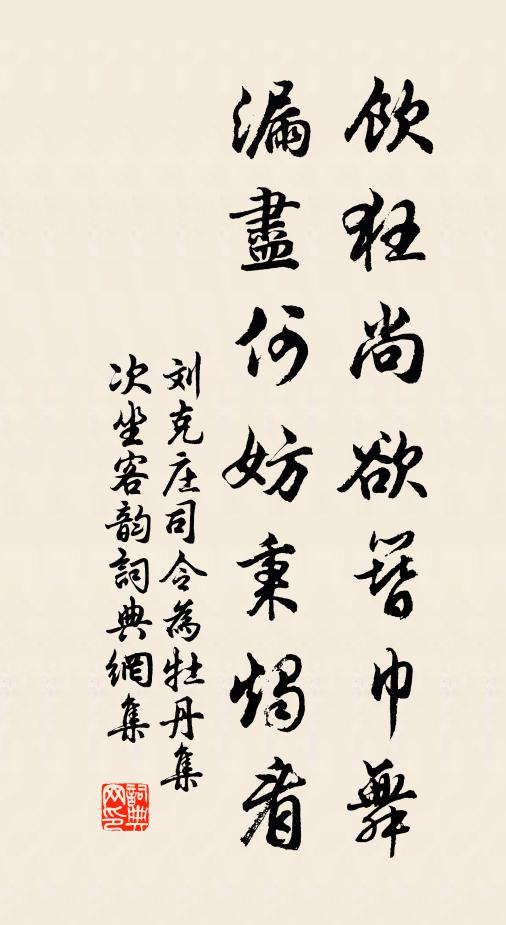 飲狂尚欲簪巾舞
漏盡何妨秉燭看
刘克庄司令為牡丹集
次坐客韵詞典網集
詞典网印